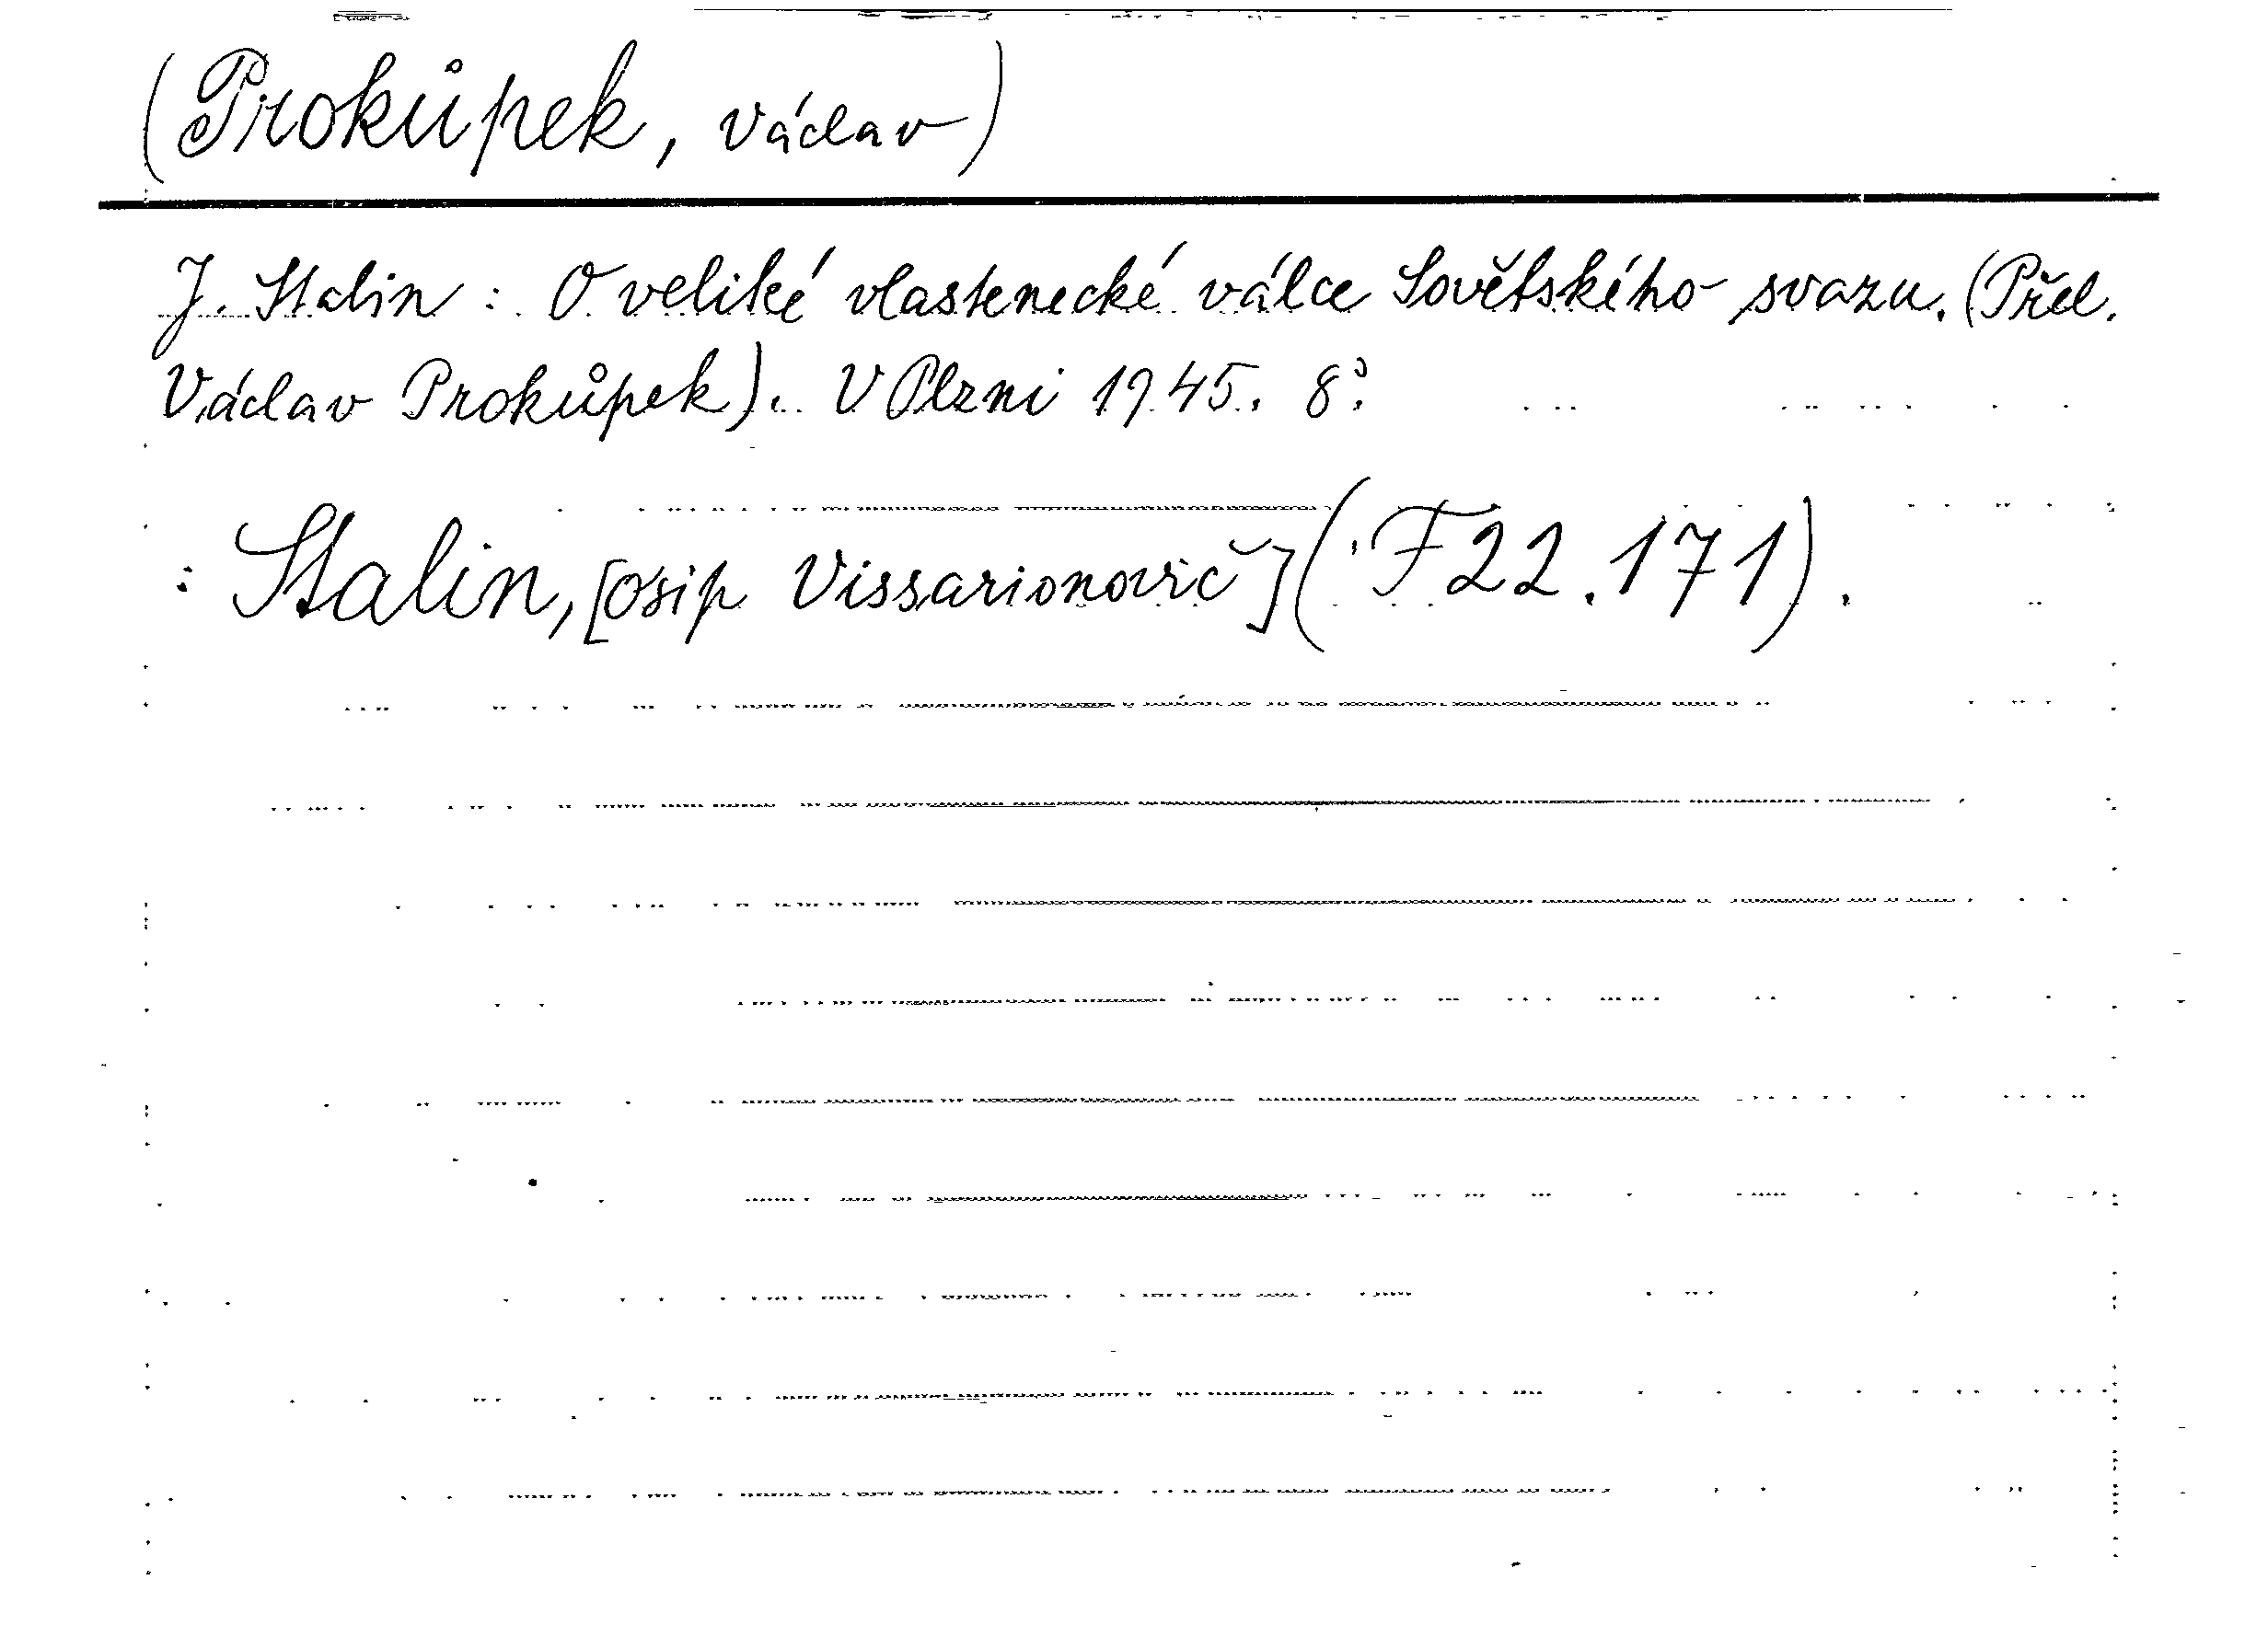 (Prokůpek, Václav)
J. Stalin : O veliké vlastenecké válce Sovětského svazu. (Přel.
Václav Prokůpek). V Plzni 1945. 8°.
: Stalin, [Osip Vissarionovič] (F 22.171).